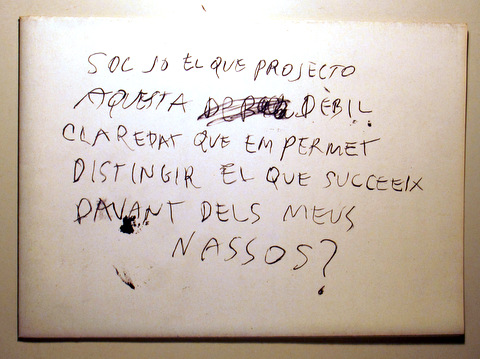 SOC JO EL QUE PROJECTO
AQUESTA DÈBIL
CLAREDAT QUE EM PERMET
DISTINGIR EL QUE SUCCEEIX
DAVANT DELS MEUS
NASSOS?